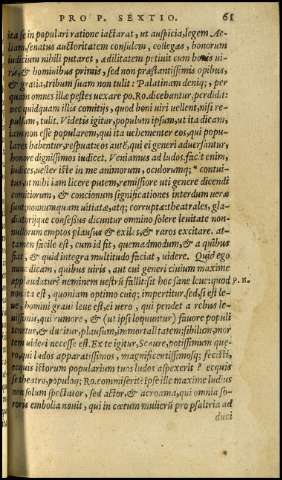 PRO P. SEXTIO. 61
ita se in populari ratione iactarat, ut auspicia, legem Ae-
liam, senatus auctoritatem consulem, collegas, bonorum
iudicium nihili putaret, ædilitatem petiuit cum bonis ui-
ris, & hominibus primis, sed non præstantissimis opibus,
& gratia: tribum suam non tulit: Palatinam deniq; per
quam omnes illæ pestes uexare po. Ro. dicebantur, perdidit:
nec quidquam illis comitijs, quod boni uiri uellent, nisi re-
pulsam, tulit. Videtis igitur, populum ipsum, ut ita dicam,
iam non esse popularem, qui ita uehementer eos, qui popu-
lares habentur, respuat: eos autē, qui ei generi aduersantur,
honore dignissimos iudicet. Veniamus ad ludos. facit enim,
iudices, uester iste in me animorum, oculorumq; contui-
tus, ut mihi iam licere putem, remissiore uti genere dicendi
comitiorum, & concionum significationes interdum ueræ
sunt nonnumquam uitiatæ, atq; corruptæ: theatrales, gla-
diatorijque consessus dicuntur omnino solere leuitate non-
nullorum emptos plausus & exiles, & raros excitare. at-
tamen facile est, cum id fit, quemadmodum, & a quibus
fiat, & quid integra multitudo faciat, uidere. Quid ego
nunc dicam, quibus uiris, aut cui generi ciuium maxime
applaudatur? neminem uestrū fallit: sit hoc sane leue: quod P. N.
non ita est, quoniam optimo cuiq; impertitur. sed, si est le-
ue, homini graui leue est. ei uero, qui pendet a rebus le-
uissimis, qui rumore, & (ut ipsi loquuntur) fauore populi
tenetur, & ducitur, plausum, immortalitatem: sibilum, mor
tem uideri necesse est. Ex te igitur, Scaure, potissimum quæ-
ro, qui ludos apparatissimos, magnificentissimosq; fecisti,
ecquis istorum popularium tuos ludos aspexerit? ecquis
se theatro, populoq; Ro. commiserit? Ipse ille maxime ludius
non solum spectator, sed actor, & acroama, qui omnia so-
roris embolia nouit, qui in cœtum mulierū pro psaltria ad
duci